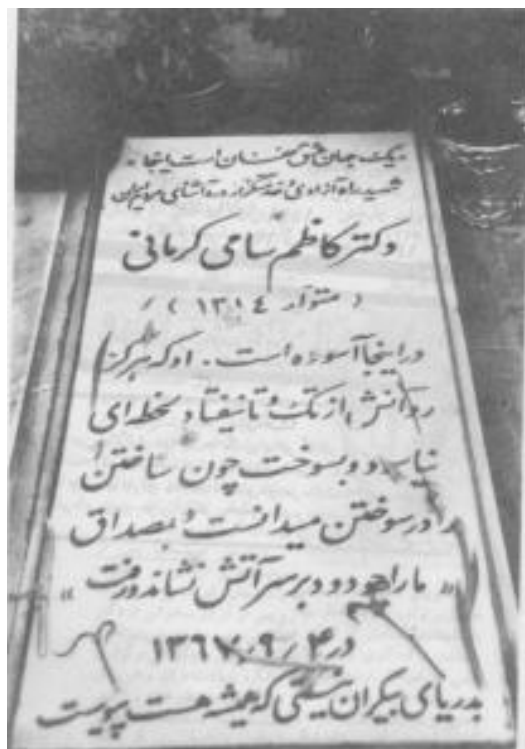 «یک جهان عشق نهان است اینجا»
شهید راه آزادی و خدمتگزار درد آشنای مردم ایران
دکتر کاظم سامی کرمانی
(متولد ۱۳۱٤)
در اینجا آسوده است. او که هرگز
روانش از تک و تا نیفتاد و لحظه‌ای
نیاسود و بسوخت چون ساختن
را در سوختن میدانست و بمصداق
«ما را چو دود بر سر آتش نشاند و رفت»
در ۴/۹/۱۳۶۷
بدریای بیکران هستی که همیشه هست پیوست